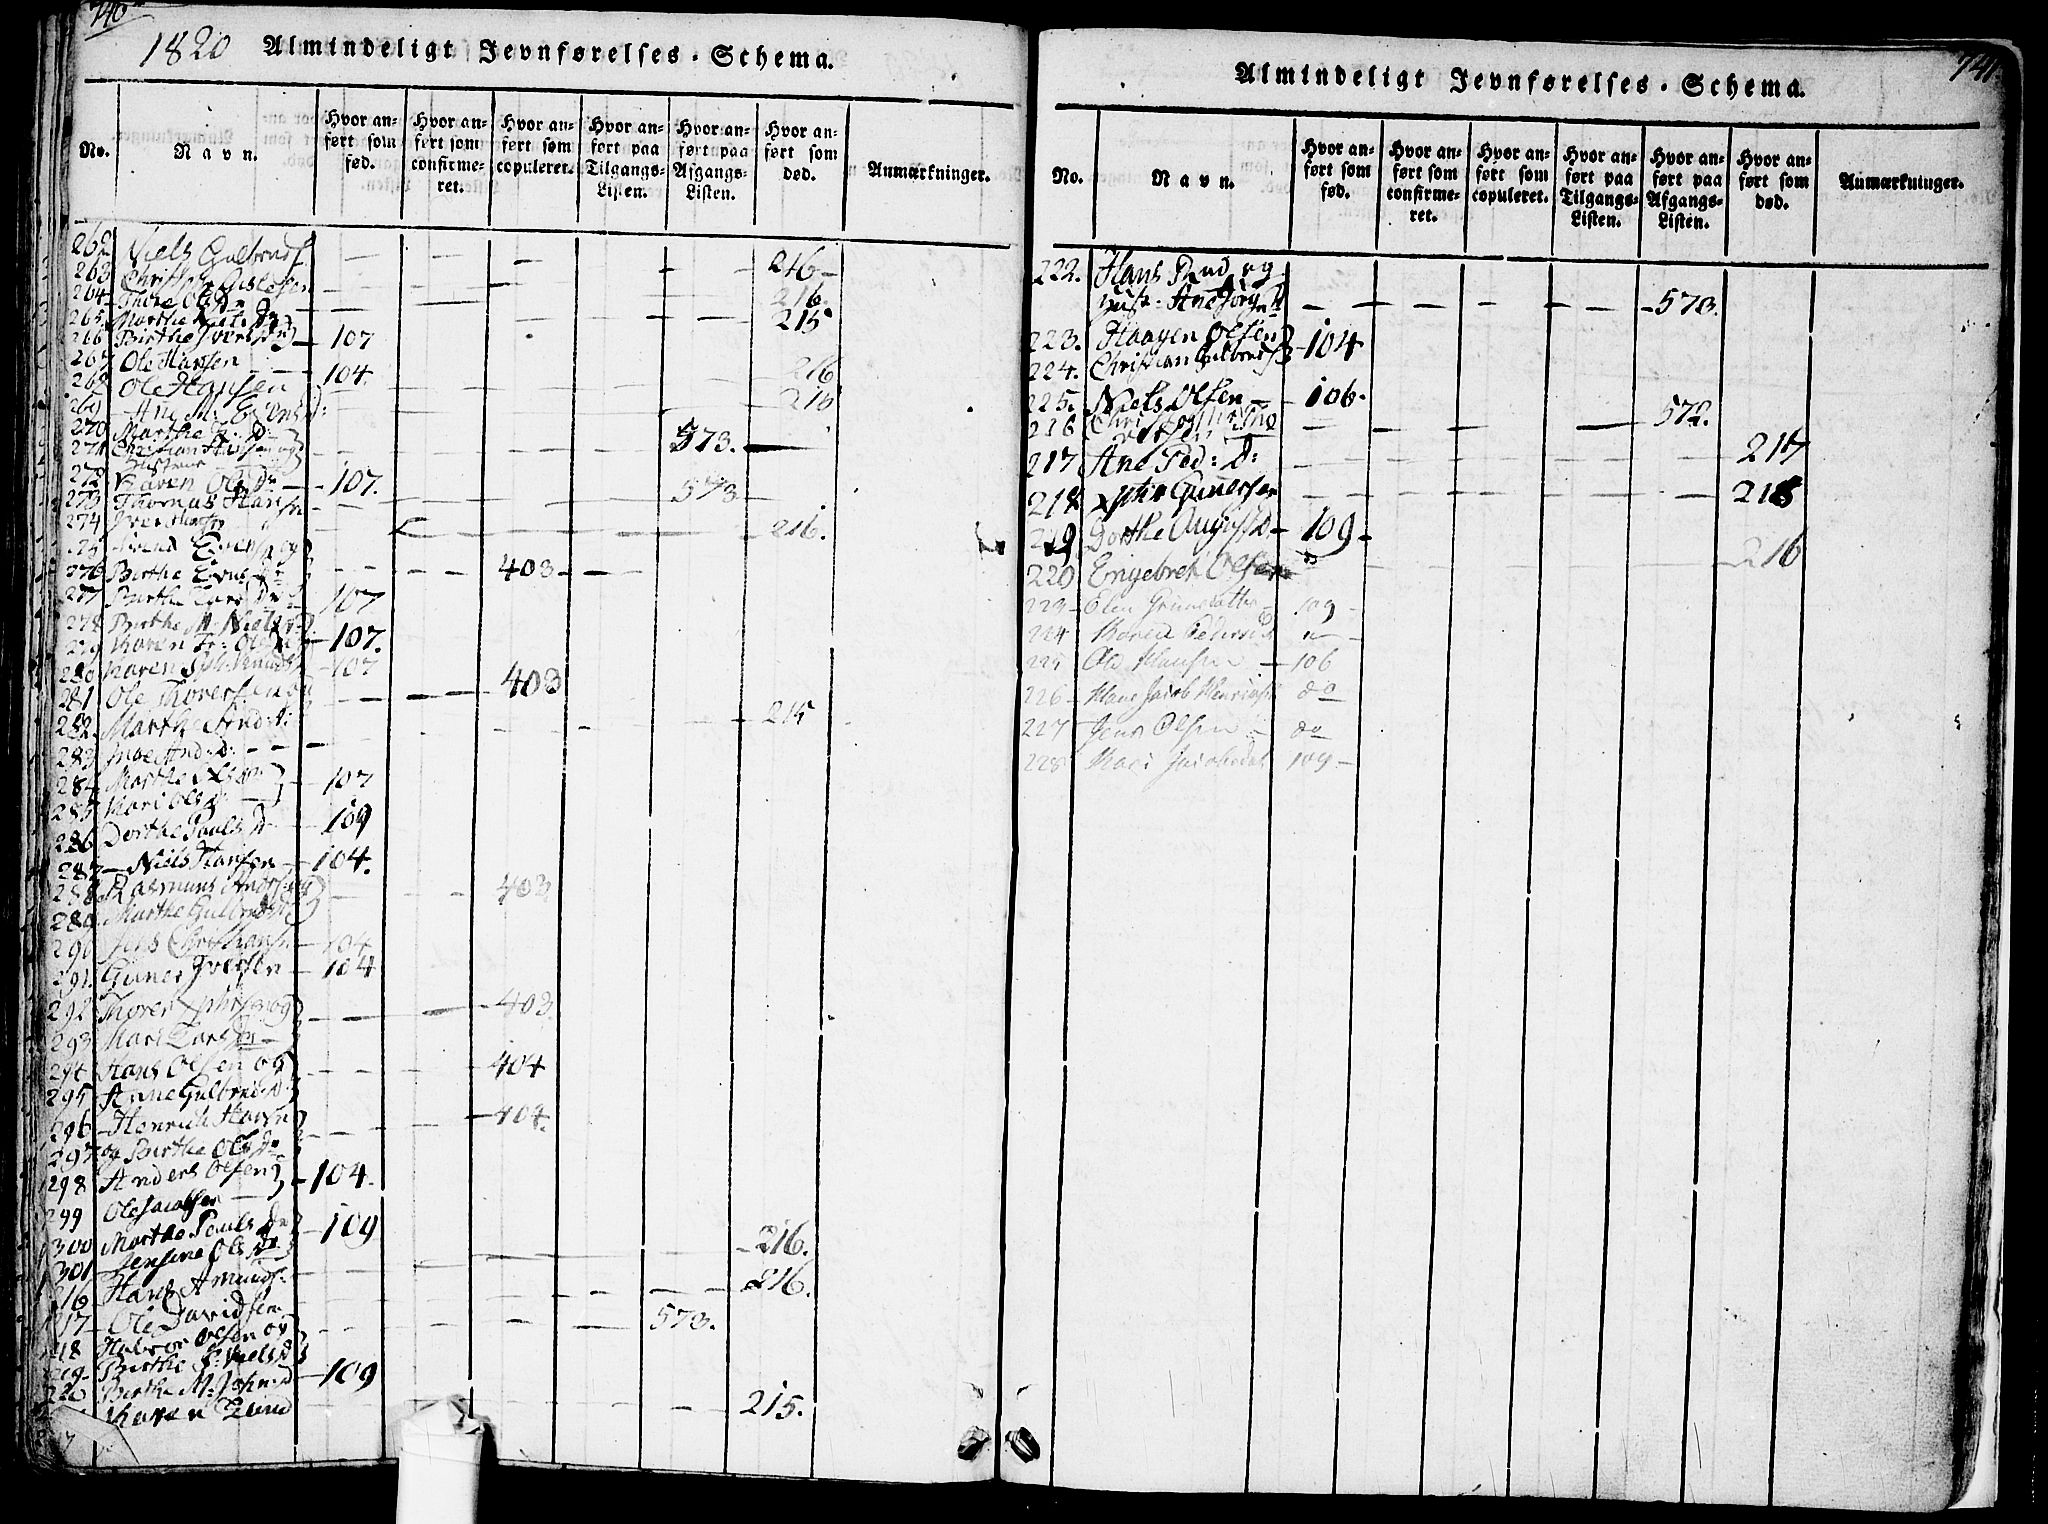 740
1820 Almindeligt Jevnførelses-Schema.
No. Navn. Hvor anført som fød. Hvor anført som confirmeret. Hvor anført som copuleret. Hvor anført paa Tilgangs-Listen. Hvor anført paa Afgangs-Listen. Hvor anført som død. Anmærkninger.
262 Niels Gulbrands. 216
263
264 Thore Ols Dr 216.
265 Marthe 215
266 Birthe Ivers Dr 107
267 Ole Hansen
268 Ole Hansen 104. 216
269 Ane M. Evens D: 216
270 Marthe
271 Christian 573.
272 Karen Ols Dr 107.
273 Thomas Hansen 573
274 Iver 216.
275 Svend Evens og
276 Birthe Evens Dr 403
277 Birthe Lars Dr 107
278 Birthe M. Niels D
279 Karen Fr: Ols 107.
280 Karen 107
281 Ole Thoresen og 403
282 Marthe And: d:
283 Inge And: d: 215
284 Marthe Ols Dr 107
285 Kari Ols D
286 Dorthe Pouls D 109
287 Niels Hansen 104.
288 Rasmus Anders: og 403
289 Marthe Gulbrds D
290 Jens Christians. 104
291. Guner Iversen 104
292 Thorer Xphers. og 403.
293 Mari Lars Dr
294 Hans Olsen og 404
295 Anne Gulbrnd: D:
296 Henrich Hansn 404.
297 og Birthe Ols Dr
298 Anders Olsen 104.
299 Ole Jacobsen
300 Marthe Pouls Dr 109
301 Jensine Ols Dr 216.
216 Hans Amunds: 216.
217 Ole Davidsen
218 Halvor Olsen og 573.
219 Birthe Niels D
220 Birthe M. John: d 109
Karen Lund 215.
741
Almindeligt Jevnførelses-Schema.
No. Navn. Hvor anført som fød. Hvor anført som confirmeret. Hvor anført som copuleret. Hvor anført paa Tilgangs-Listen. Hvor anført paa Afgangs-Listen. Hvor anført som død. Anmærkninger.
222. Hans Rud og
Hust. Ane Jørgens D 573.
223. Haagen Olsen 104
224. Christian Gulbrds
225. Niels Olsen 106.
216 Christopher Thoresen 572.
217 Ane Ped: D: 217
218 Xpher Gunersen 218
219 Dorthe Augusts D 109
220 Engebret Olsen 216
223 Elen Gunersdatter 109
224 Karen Pedersd
225 Ole Hansen 106
226 Hans Jacob Henrichs do
227 Jens Olsen do
228 Kari Jacobsdat 109